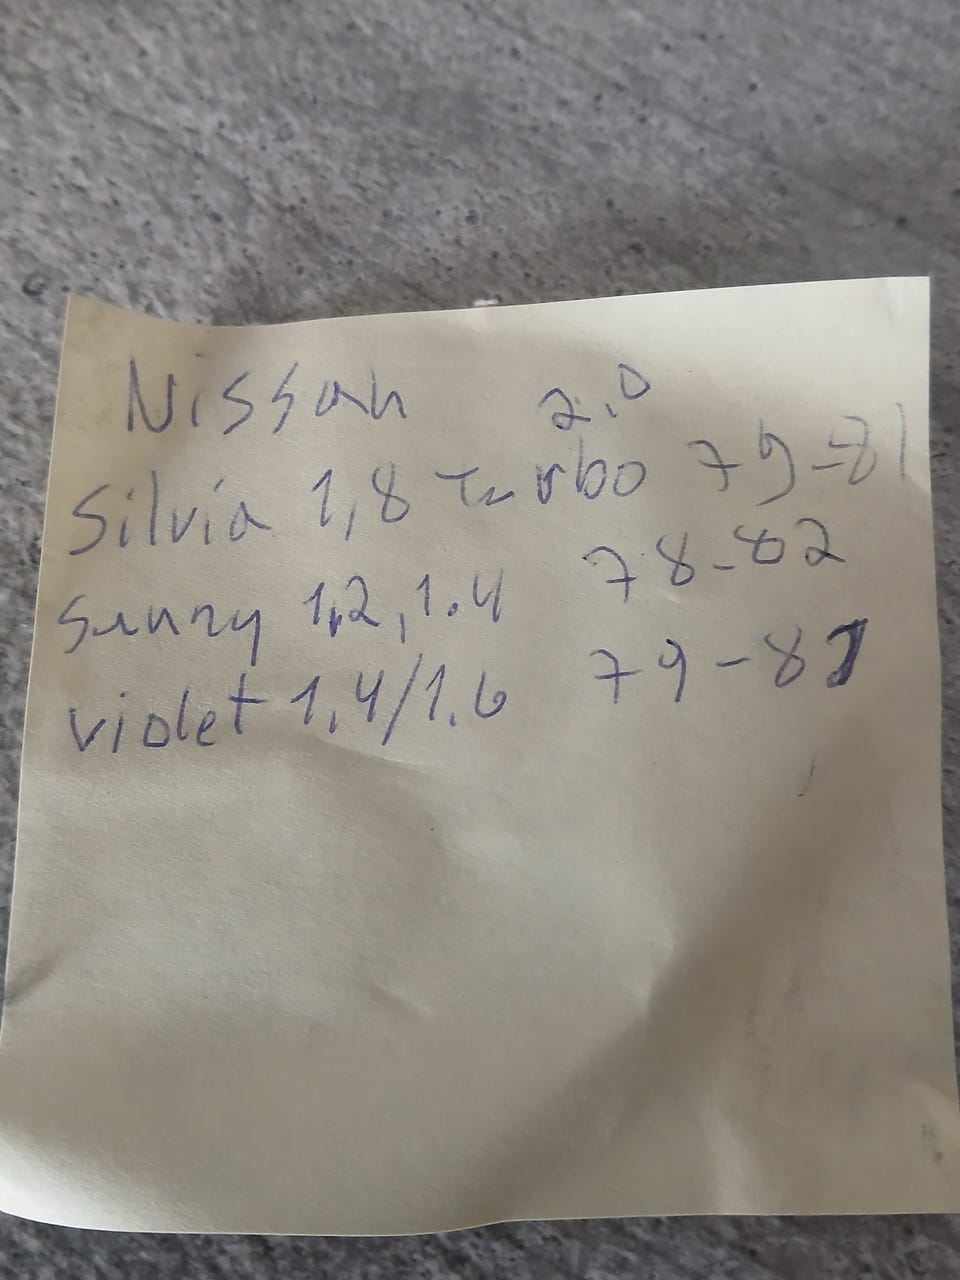 Nissan 2.0
Silvia 1,8 Turbo 79-81
Sunny 1.2, 1.4 78-82
violet 1.4/1.6 79-81